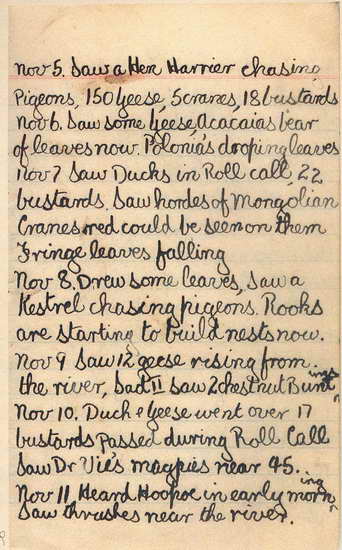 Nov 5. Saw a Hen Harrier chasing
Pigeons, 150 Geese, 5 cranes, 18 bustards
Nov 6. Saw some Geese, Acacaias bear
of leaves now. Polonia's droping leaves
Nov 7 Saw Ducks in Roll call, 22
bustards. Saw hordes of Mongolian
Cranes red could be seen on them
Fringe leaves falling
Nov 8. Drew some leaves, saw a
Kestrel chasing pigeons. Rooks
are starting to build nests now.
Nov 9 Saw 12 geese rising from
the river, Dad II saw 2 chestnut Buntings
Nov 10. Duck & Geese went over 17
bustards Passed during Roll Call
Saw Dr Vie's magpies near 45.
Nov 11 Heard Hoopoe in early morning
Saw thrushes near the river.